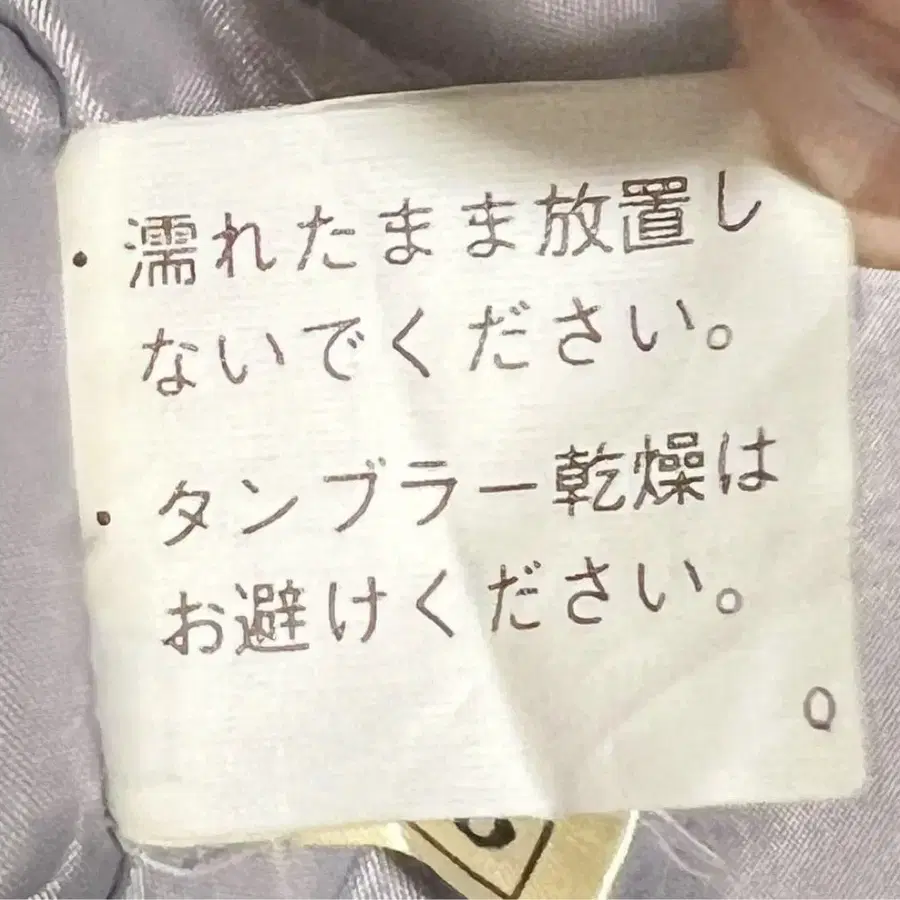 ・濡れたまま放置し
ないでください。
・タンブラー乾燥は
お避けください。
0